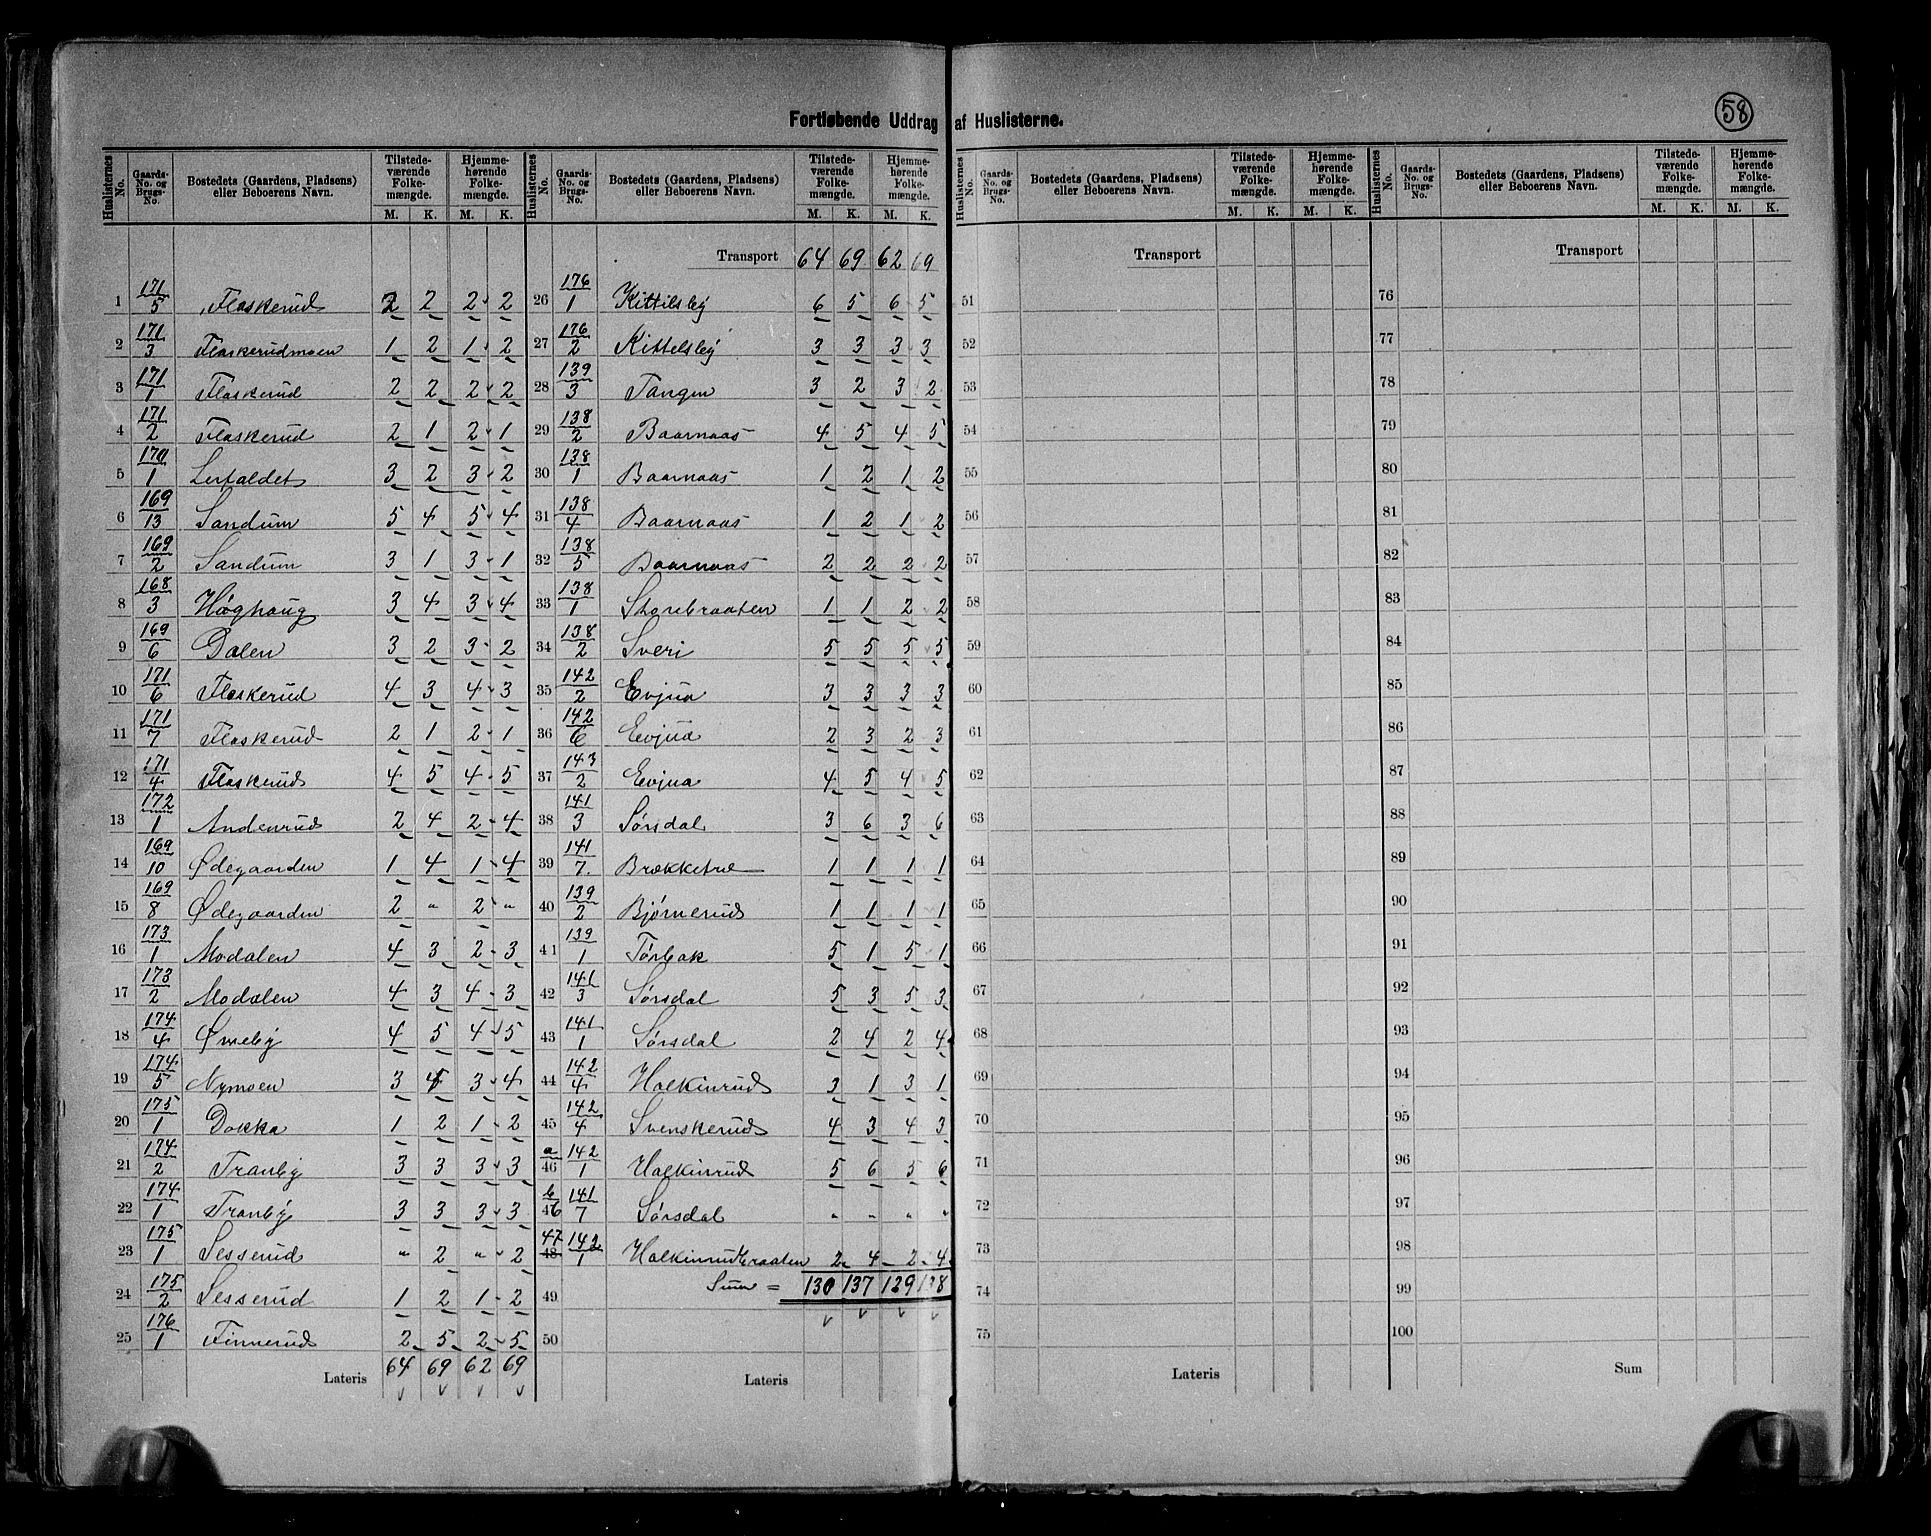 58
Fortløbende Uddrag af Huslisterne.
Huslisternes No. | Gaards-No. og Brugs-No. | Bostedets (Gaardens, Pladsens) eller Beboerens Navn. | Tilstedeværende Folkemængde. M. K. | Hjemmehørende Folkemængde. M. K.
1 171/5 Flaskerud 2 2 2 2
2 171/3 Flaskerudmoen 1 2 1 2
3 171/1 Flaskerud 2 2 2 2
4 171/2 Flaskerud 2 1 2 1
5 170/1 Lerfaldet 3 2 3 2
6 169/13 Sandum 5 4 5 4
7 169/2 Sandum 3 1 3 1
8 168/3 Høghaug 3 4 3 4
9 169/6 Dalen 3 2 3 2
10 171/6 Flaskerud 4 3 4 3
11 171/7 Flaskerud 2 1 2 1
12 171/4 Flaskerud 4 5 4 5
13 172/1 Andenrud 2 4 2 4
14 169/10 Ødegaarden 1 4 1 4
15 169/8 Ødegaarden 2 " 2 "
16 173/1 Modalen 4 3 2 3
17 173/2 Modalen 4 3 4 3
18 174/4 Ømeby 4 5 4 5
19 174/5 Nymoen 3 4 3 4
20 175/1 Dokka 1 2 1 2
21 174/2 Tranby 3 3 3 3
22 174/1 Tranby 3 3 3 3
23 175/1 Sesserud " 2 " 2
24 175/2 Sesserud 1 2 1 2
25 176/1 Finnerud 2 5 2 5
Lateris 64 69 62 69
Huslisternes No. | Gaards-No. og Brugs-No. | Bostedets (Gaardens, Pladsens) eller Beboerens Navn. | Tilstedeværende Folkemængde. M. K. | Hjemmehørende Folkemængde. M. K.
Transport 64 69 62 69
26 176/1 Kittilsby 6 5 6 5
27 176/2 Kittelsby 3 3 3 3
28 139/3 Tangen 3 2 3 2
29 138/2 Baarnaas 4 5 4 5
30 138/1 Baarnaas 1 2 1 2
31 138/4 Baarnaas 1 2 1 2
32 138/5 Baarnaas 2 2 2 2
33 138/1 Storebraaten 1 1 2 2
34 138/2 Sveri 5 5 5 5
35 142/2 Evjua 3 3 3 3
36 142/6 Eevjua 2 3 2 3
37 143/2 Evjua 4 5 4 5
38 141/3 Sørsdal 3 6 3 6
39 141/7. Brækketræ 1 1 1 1
40 139/2 Bjørnerud 1 1 1 1
41 139/1 Tørbak 5 1 5 1
42 141/3 Sørsdal 5 3 5 3
43 141/1 Sørsdal 2 4 2 4
44 142/4 Halkinrud 3 1 3 1
45 142/4 Svenskerud 4 3 4 3
a 46 142/1 Halkinrud 5 6 5 6
b 46 141/7 Sørsdal " " " "
47 48 142/1 Halkinrudbraaten 2 4 2 4
49 Sum = 130 137 129 138
50
Lateris
Huslisternes No. | Gaards-No. og Brugs-No. | Bostedets (Gaardens, Pladsens) eller Beboerens Navn. | Tilstedeværende Folkemængde. M. K. | Hjemmehørende Folkemængde. M. K.
Transport
51
52
53
54
55
56
57
58
59
60
61
62
63
64
65
66
67
68
69
70
71
72
73
74
75
Lateris
Huslisternes No. | Gaards-No. og Brugs-No. | Bostedets (Gaardens, Pladsens) eller Beboerens Navn. | Tilstedeværende Folkemængde. M. K. | Hjemmehørende Folkemængde. M. K.
Transport
76
77
78
79
80
81
82
83
84
85
86
87
88
89
90
91
92
93
94
95
96
97
98
99
100
Sum